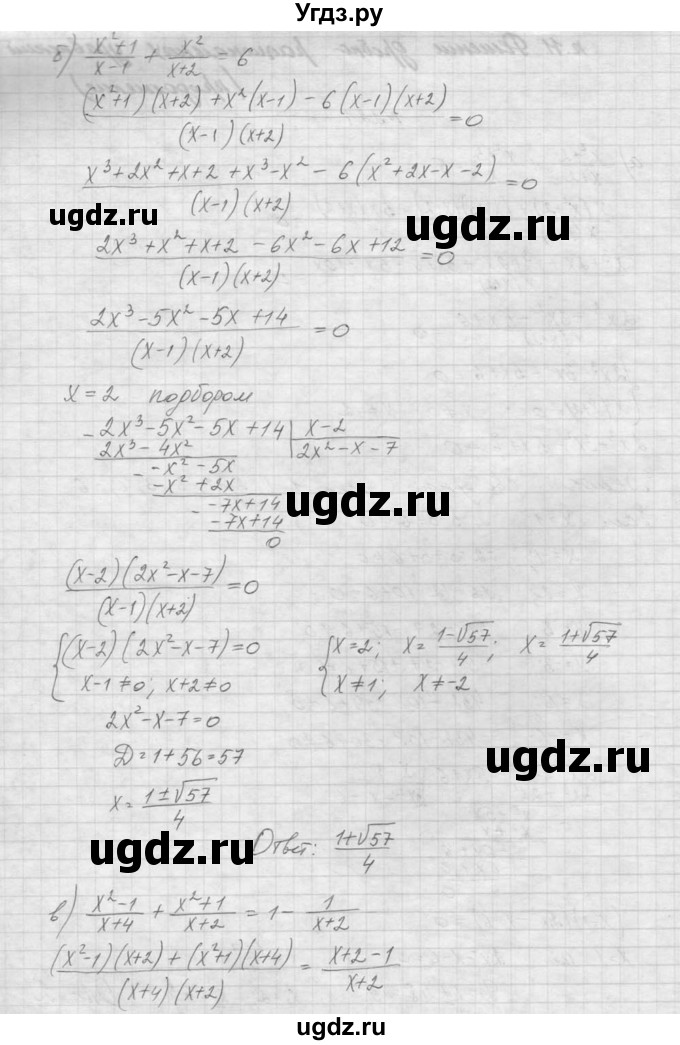 Угдз.ру
б) (x²+1)/(x-1) + x²/(x+2) = 6
((x²+1)(x+2) + x²(x-1) - 6(x-1)(x+2))/((x-1)(x+2)) = 0
(x³+2x²+x+2+x³-x² - 6(x²+2x-x-2))/((x-1)(x+2)) = 0
ugdz.ru ugdz.ru
(2x³+x²+x+2 - 6x²-6x+12)/((x-1)(x+2)) = 0
(2x³-5x²-5x+14)/((x-1)(x+2)) = 0
x=2 подбором
- 2x³-5x²-5x+14 | x-2
2x³-4x² | 2x²-x-7
- -x²-5x
-x²+2x
- -7x+14
-7x+14
0
ugdz.ru
((x-2)(2x²-x-7))/((x-1)(x+2)) = 0
{ (x-2)(2x²-x-7)=0 { x=2; x=(1-√57)/4; x=(1+√57)/4
x-1≠0; x+2≠0 x≠1; x≠-2
2x²-x-7=0
Д=1+56=57
ugdz.ru
x=(1±√57)/4
ugdz.ru
Ответ: (1+√57)/4
в) (x²-1)/(x+4) + (x²+1)/(x+2) = 1 - 1/(x+2)
((x²-1)(x+2) + (x²+1)(x+4))/((x+4)(x+2)) = (x+2-1)/(x+2)
ugdz.ru